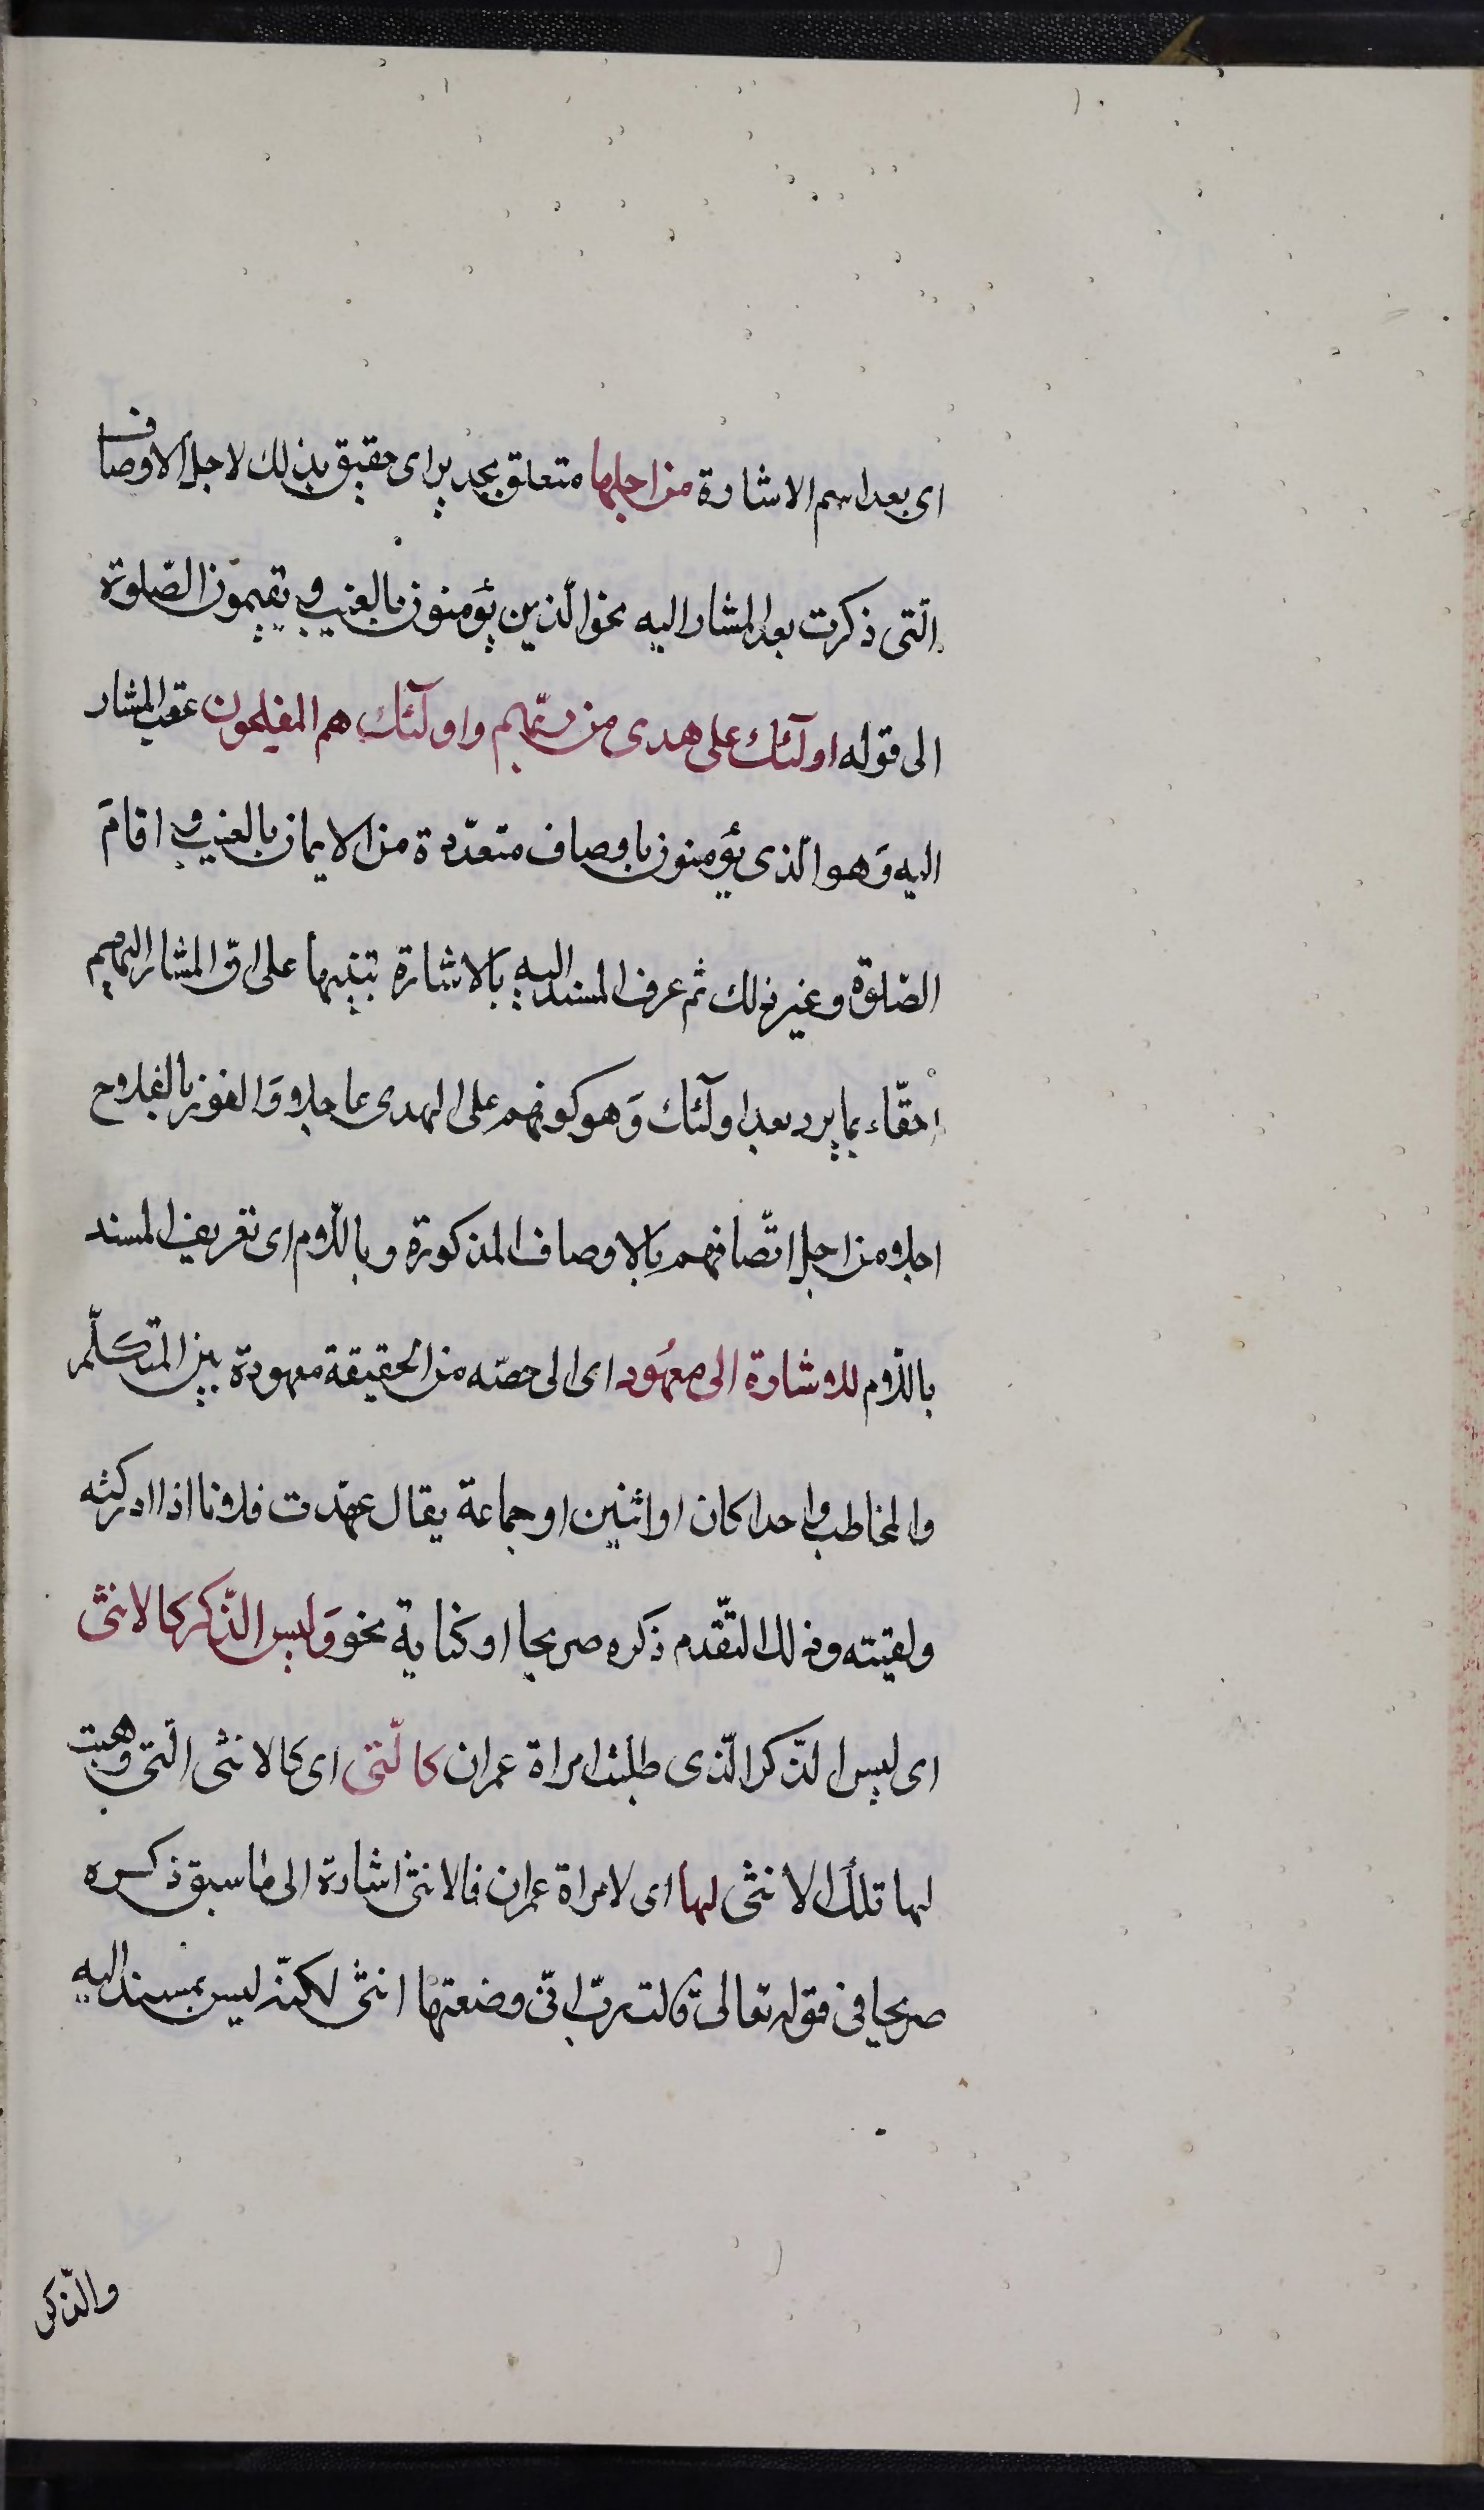 اى بعد اسم الاشارة من اجلها متعلق بجدير اى حقيق بذلك لاجل الاوصاف
التى ذكرت بعد المشار اليه نحو الّذين يؤمنون بالغيب و يقيمون الصّلوة
الى قوله اولٓئك على هدى من ربّهم واولٓئك هم المفلحون عقب المشار
اليه وَهو الّذى يؤمنون باوصاف متعدّدة من الايمان بالغيب و اقامَ
الصّلوة وغير ذلك ثم عرف المسند اليه بالاشارة تنبيها على انّ المشار اليهم
احقّاء بما يرد بعد اولٓئك وَهو كونهم على الهدى عاجلا وَالفوز بالفلاح
اجلا من اجل اتّصافهم بالاوصاف المذكورة و باللّام اى تعريف المسند
باللّام للاشارة الى معهُود اى الى حصّه من الحقيقة معهودة بين المتكلّم
والمخاطب واحدا كان او اثنين او جماعة يقال عهّدت فلانا اذا ادركته
ولقيته وذلك لتقّدم ذكره صريحا او كناية نحو وَليس الذّكر كالانثى
اى ليس الذّكر الّذى طلبت امراة عمران كالّتى اى كالانثى الّتى وهبت
لها تلك الانثى لها اى لامراة عمران فالانثى اشارة الى ما سبق ذكره
صريحا فى قوله تعالى قالت ربّ انّى وضعتها انثى لكنّه ليس بمسند اليه
والذّكر